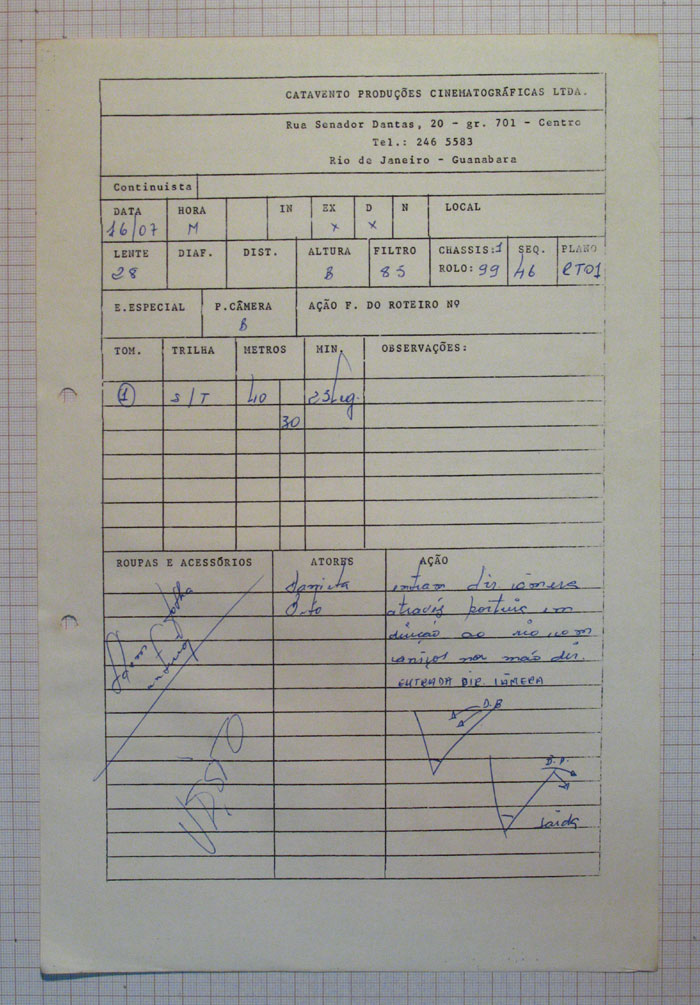 CATAVENTO PRODUÇÕES CINEMATOGRÁFICAS LTDA.
Rua Senador Dantas, 20 - gr. 701 - Centro
Tel.: 246 5583
Rio de Janeiro - Guanabara
Continuista
DATA HORA IN EX D N LOCAL
16/07 M x x
LENTE DIAF. DIST. ALTURA FILTRO CHASSIS:1 SEQ. PLANO
28 B 85 ROLO: 99 46 RT01
E.ESPECIAL P.CÂMERA AÇÃO F. DO ROTEIRO Nº
B
TOM. TRILHA METROS MIN. OBSERVAÇÕES:
1 S/T 40 23seg.
30
ROUPAS E ACESSÓRIOS ATORES AÇÃO
entram dir câmera
através
direção ao rio com
caniços na mão dir.
ENTRADA DIR. CÂMERA
VISTO
Saída